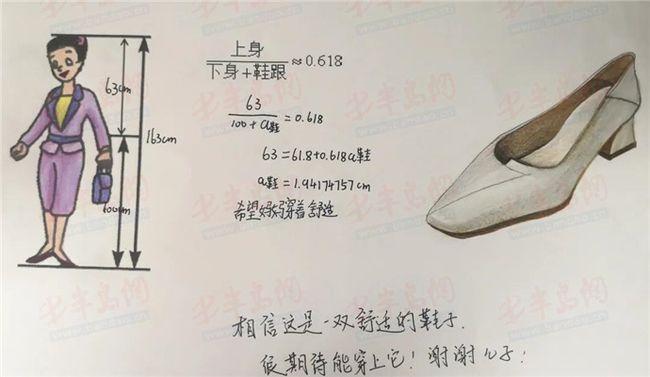 63cm
163cm
100cm
上身
下身+鞋跟
≈0.618
63
100+a鞋
=0.618
63=61.8+0.618a鞋
a鞋=1.94174757cm
希望妈妈穿着舒适
相信这是一双舒适的鞋子.
很期待能穿上它!谢谢儿子!
半岛网